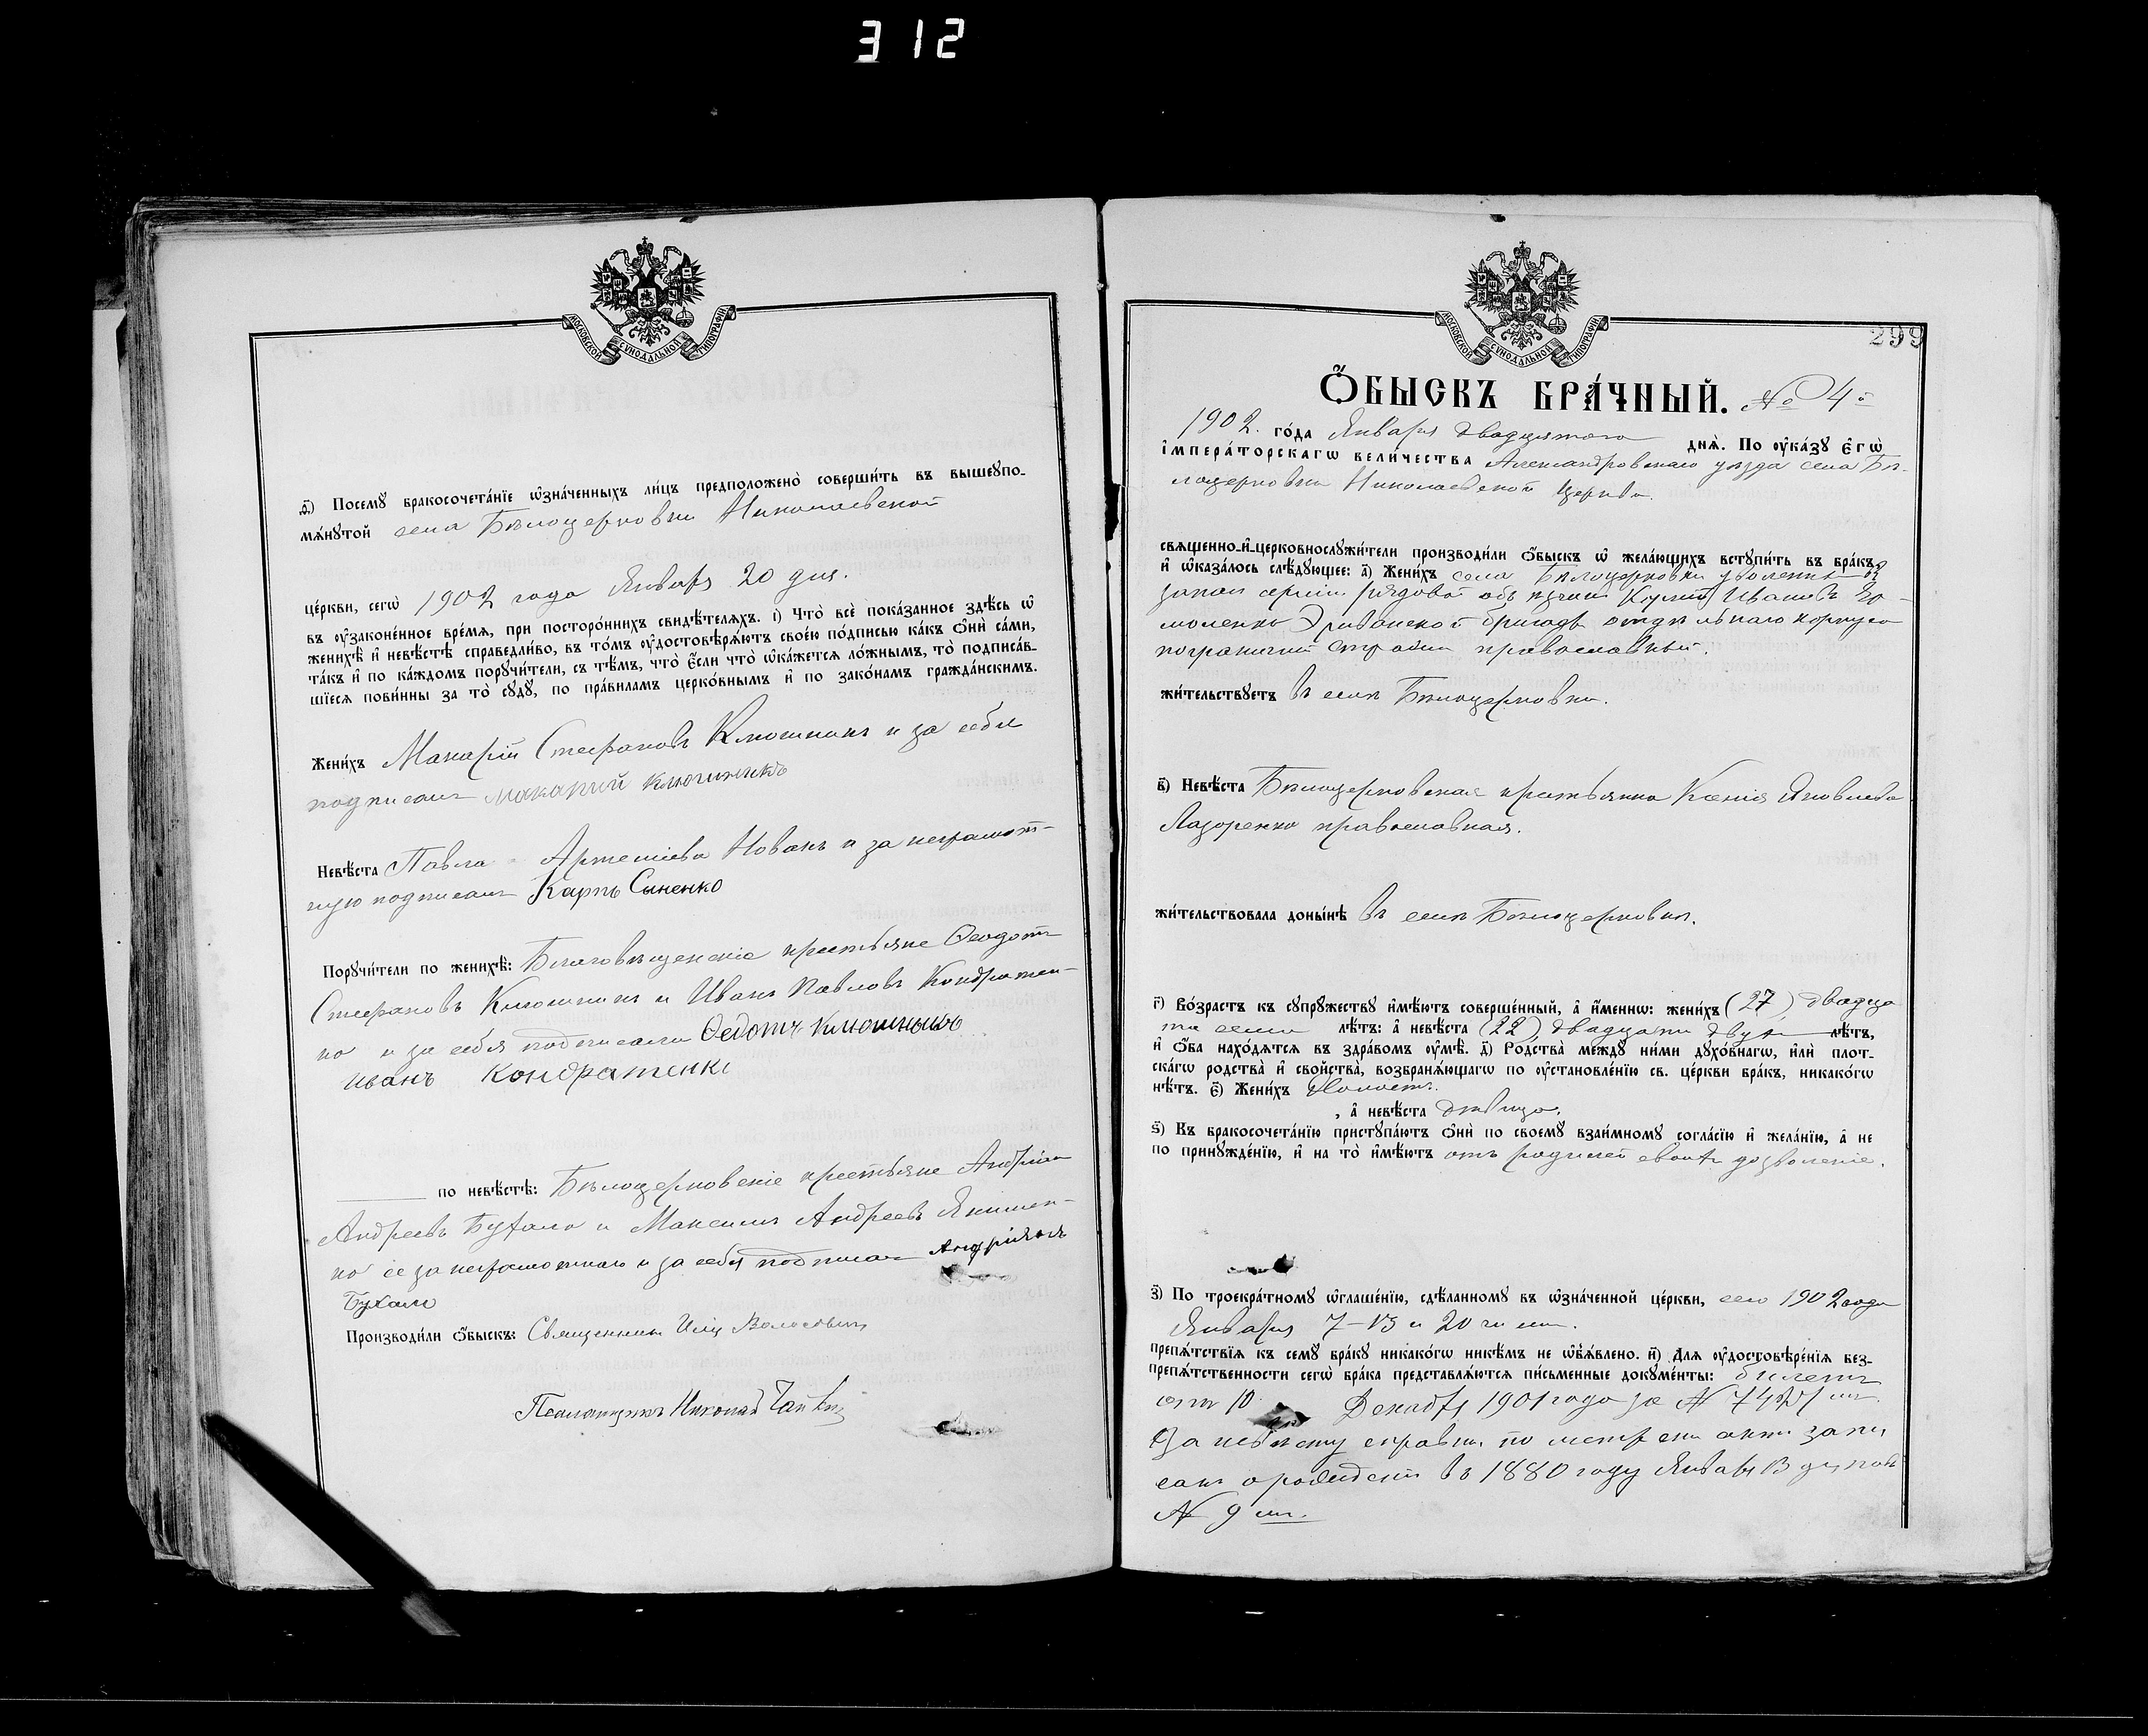 312
МОСКОВСКОЙ СУНОДАЛЬНОЙ ТИПОГРАФІИ
Ѳ҃) Посемꙋ бракосочета́нїе ѡ҆зна́ченныхъ ли́цъ предположено̀ соверши́ть въ вышеꙋпо-
мѧ́нꙋтой села Бѣлоцерковки Николаевской
це́ркви, сегѡ̀ 1902 года Января 20 дня.
въ ᲂу҆зако́ненное вре́мѧ, при посторо́ннихъ свидѣ́телѧхъ. і҃) Что̀ всѐ пока́занное здѣ́сь ѡ҆
женихѣ̀ и҆ невѣ́стѣ справедли́во, въ то́мъ ᲂу҆достовѣрѧ́ютъ свое́ю по́дписью ка́къ ѻ҆нѝ са́ми,
та́къ и҆ по ка́ждомъ порꙋчи́тели, съ тѣ́мъ, что̀ є҆́сли что̀ ѡ҆ка́жетсѧ ло́жнымъ, то̀ подписа́в-
шїесѧ пови́нны за то̀ сꙋдꙋ̀, по пра́виламъ церко́внымъ и҆ по зако́намъ гражда́нскимъ.
Жени́хъ Макарій Стефановъ Ключникъ и за себя
подписалъ Макарий Ключникъ
Невѣ́ста Павла Артеміева Новакъ и за неграмот-
ную подписалъ Карпъ Сыненко
Порꙋчи́тели по женихѣ̀: Благовѣщенскіе крестьяне Ѳеодотъ
Стефановъ Ключникъ и Иванъ Павловъ Кондратен-
ко и за себя подписали Ѳедотъ Ключныкъ
Иванъ Кондратенко
по невѣ́стѣ: Бѣлоцерковскіе крестьяне Андріанъ
Андреевъ Бухало и Максимъ Андреевъ Якимен-
ко за неграмотнаго и за себя подписалъ Андріянъ
Бухало
Производи́ли ѻ҆́быскъ: Священникъ
Псаломщикъ Николай
МОСКОВСКОЙ СУНОДАЛЬНОЙ ТИПОГРАФІИ
299
Ѻ҆́БЫСКЪ БРА́ЧНЫЙ. № 4й
1902. го́да Января двадцятого днѧ̀. По ᲂу҆ка́зꙋ є҆гѡ̀
і҆мпера́торскагѡ вели́чества Александровскаго уѣзда села Бѣ-
лоцерковки Николаевской церкви.
свѧщенно-и҆-церковнослꙋжи́тели производи́ли ѻ҆́быскъ ѡ҆ жела́ющихъ встꙋпи́ть въ бра́къ,
и҆ ѡ҆каза́лось слѣ́дꙋющее: а҃) Жени́хъ села Бѣлоцерковки уволенный въ
запасъ арміи рядовой Иванов Ер-
моленко Эриванской бригады отдѣльнаго корпуса
пограничной стражи православный.
жи́тельствꙋетъ въ селѣ Бѣлоцерковки.
в҃) Невѣ́ста Бѣлоцерковская крестьянка Ксенія Яковлева
Лазоренко православная.
жи́тельствовала донынѣ въ селѣ Бѣлоцерковки.
г҃) Во́зрастъ къ сꙋпрꙋ́жествꙋ и҆мѣ́ютъ соверше́нный, а҆ и҆́меннѡ: жени́хъ (27) двадца
ти семи лѣ́тъ: а҆ невѣ́ста (22) двадцати двух лѣ́тъ,
и҆ ѻ҆́ба нахо́дѧтсѧ въ здра́вомъ ᲂу҆мѣ̀. д҃) Родства̀ междꙋ̀ ни́ми дꙋхо́внагѡ, и҆лѝ плот-
ска́гѡ родства̀ и҆ свойства̀, возбранѧ́ющагѡ по ᲂу҆становле́нїю св. це́ркви бра́къ, никако́гѡ
нѣ́тъ. є҃) Жени́хъ Холостъ.
, а҆ невѣ́ста дѣвица.
ѕ҃) Къ бракосочета́нїю пристꙋпа́ютъ ѻ҆нѝ по своемꙋ̀ взаи́мномꙋ согла́сїю и҆ жела́нїю, а҆ не
по принꙋжде́нїю, и҆ на то̀ и҆мѣ́ютъ отъ родителей своихъ дозволеніе.
з҃) По троекра́тномꙋ ѡ҆глаше́нїю, сдѣ́ланномꙋ въ ѡ҆зна́ченной це́ркви, сего 1902 года
Января 7–13 и 20 числ.
препѧ́тствїѧ къ семꙋ̀ бра́кꙋ никако́гѡ никѣ́мъ не ѡ҆б̾ѧ́влено. и҃) Длѧ ᲂу҆достовѣре́нїѧ без-
препѧ́тственности сегѡ̀ бра́ка представлѧ́ютсѧ пи́сьменные докꙋме́нты: билетъ
отъ 10 Декабря 1901 года за №
За невѣсту справка по метрикѣ актъ запи
санъ о рожденіи въ 1880 году Января 13 дня подъ
№ 9 мъ.